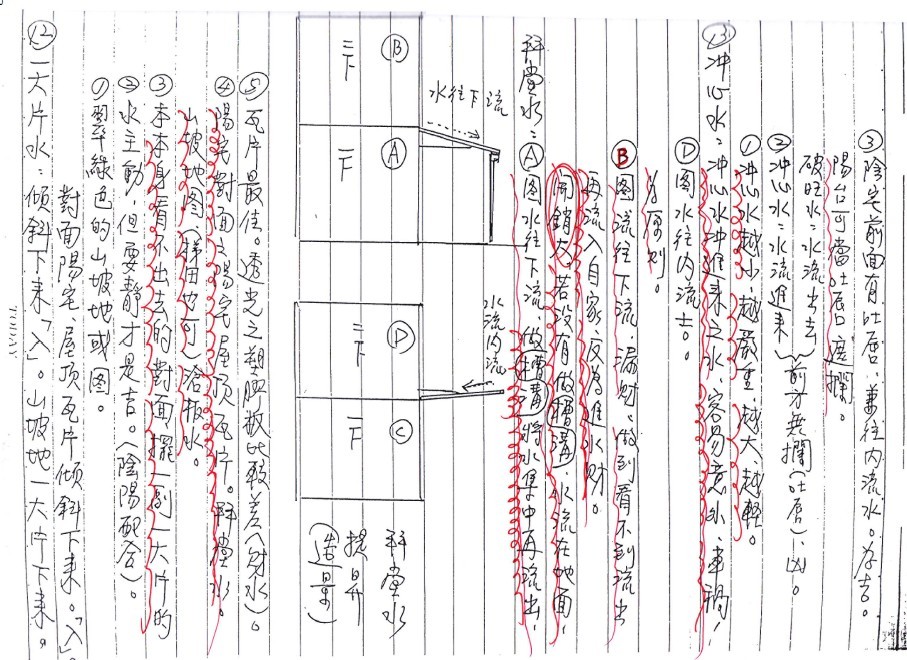 ③陰宅前面有吐唇,兼往內流水。為吉。
陽台可當吐唇,遮攔。
破旺水:水流出去
②冲心水:水流進來
前方無攔(吐唇),凶。
①冲心水越小、越嚴重,越大、越輕。
⑬冲心水:冲心水冲進來之水,容易意外、車禍,
Ⓓ图水往內流吉。
為原则。
Ⓑ图流往下流,漏财。做到看不到流出
再流入自家,反為進水财。
開銷大,若没有做槽溝,水流在地面,
斜堂水:Ⓐ图水往下流,做槽溝將水集中再流出,
水往下流
Ⓑ 二下
Ⓐ 一下
水流内流
Ⓓ 二下
Ⓒ 一下
斜堂水
提昇
⑤瓦片最佳。透光之塑膠板比較差(射水)。
④陽宅對面之陽宅屋頂瓦片。斜堂水。
山坡地图(梯田也可)滄板水。
③本身看不出去的對面擺一副一大片的
②水主動,但要靜才是吉。(陰陽配合)。
①翠綠色的山坡地或图。
對面陽宅、屋頂瓦片傾斜下來。「入」。
⑫一大片水:傾斜下來「入」。山坡地一大片下來。